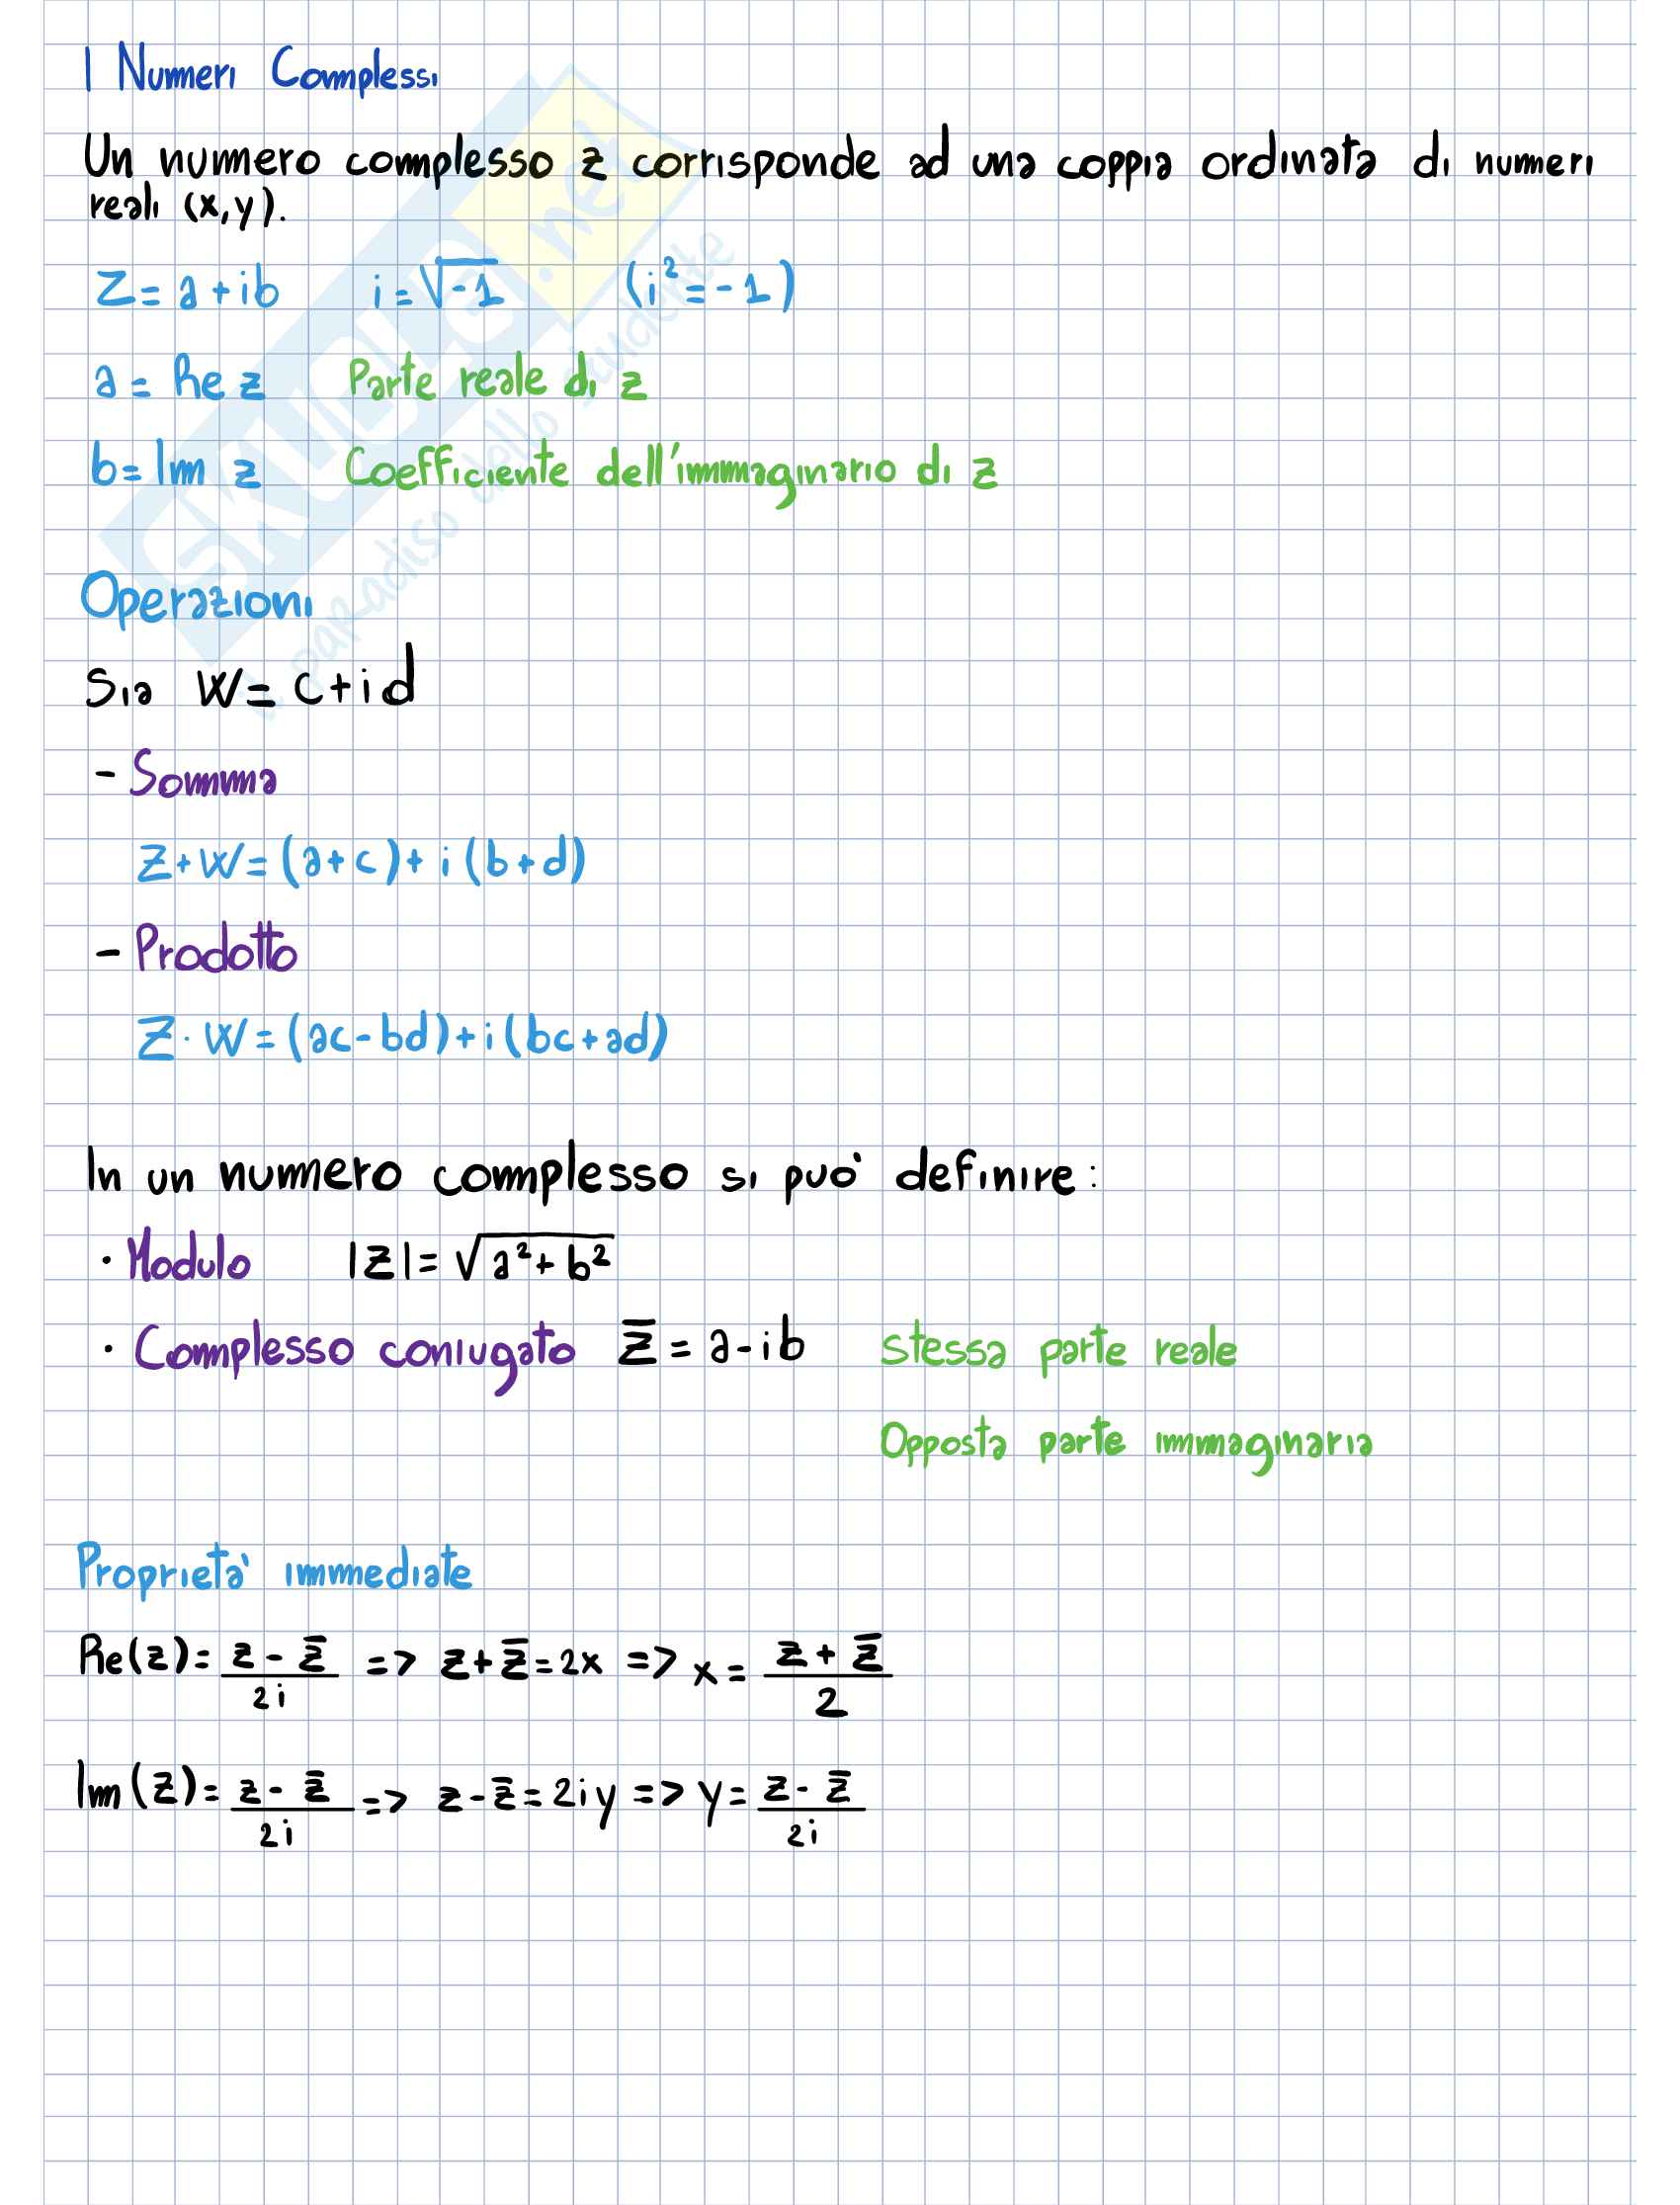 I Numeri Complessi
Un numero complesso z corrisponde ad una coppia ordinata di numeri
reali (x,y).
Z = a + ib i = √-1 (i² = -1)
a = Re z Parte reale di z
b = Im z Coefficiente dell'immaginario di z
Operazioni
Sia W = c + id
- Somma
Z + W = (a + c) + i (b + d)
- Prodotto
Z · W = (ac - bd) + i (bc + ad)
In un numero complesso si può definire:
· Modulo |Z| = √a² + b²
· Complesso coniugato z̅ = a - ib Stessa parte reale
Opposta parte immaginaria
Proprietà immediate
Re(z) = (z - z̅)/2i => z + z̅ = 2x => x = (z + z̅)/2
Im(z) = (z - z̅)/2i => z - z̅ = 2iy => y = (z - z̅)/2i
SKUOLA.net
il paradiso dello studente